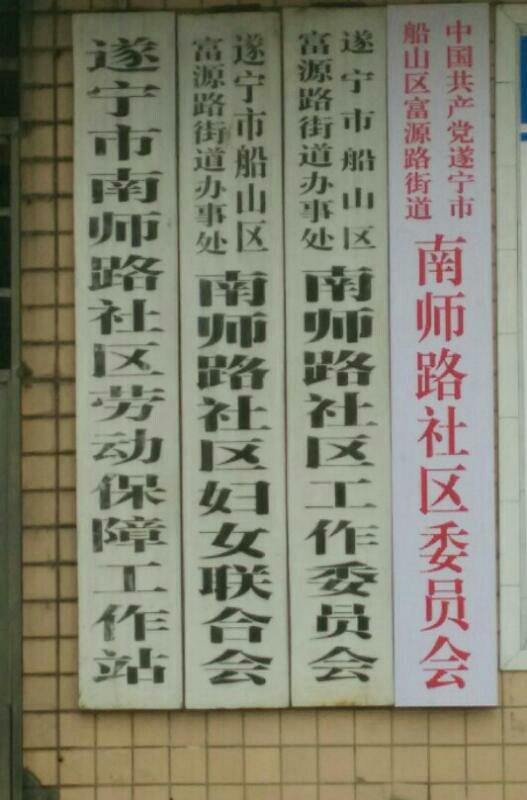 中国共产党遂宁市
船山区富源路街道
南师路社区委员会
遂宁市船山区
富源路街道办事处
南师路社区工作委员会
遂宁市船山区
富源路街道办事处
南师路社区妇女联合会
遂宁市南师路社区劳动保障工作站